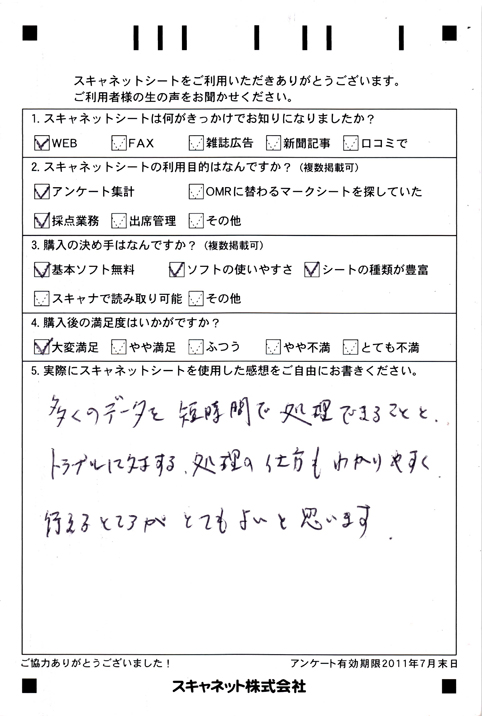 スキャネットシートをご利用いただきありがとうございます。
ご利用者様の生の声をお聞かせください。
1. スキャネットシートは何がきっかけでお知りになりましたか?
WEB FAX 雑誌広告 新聞記事 口コミで
2. スキャネットシートの利用目的はなんですか?(複数掲載可)
アンケート集計 OMRに替わるマークシートを探していた
採点業務 出席管理 その他
3. 購入の決め手はなんですか?(複数掲載可)
基本ソフト無料 ソフトの使いやすさ シートの種類が豊富
スキャナで読み取り可能 その他
4. 購入後の満足度はいかがですか?
大変満足 やや満足 ふつう やや不満 とても不満
5. 実際にスキャネットシートを使用した感想をご自由にお書きください。
多くのデータを短時間で処理できることと、
トラブルに対する、処理の仕方もわかりやすく
行えるところがとてもよいと思います.
ご協力ありがとうございました! アンケート有効期限2011年7月末日
スキャネット株式会社